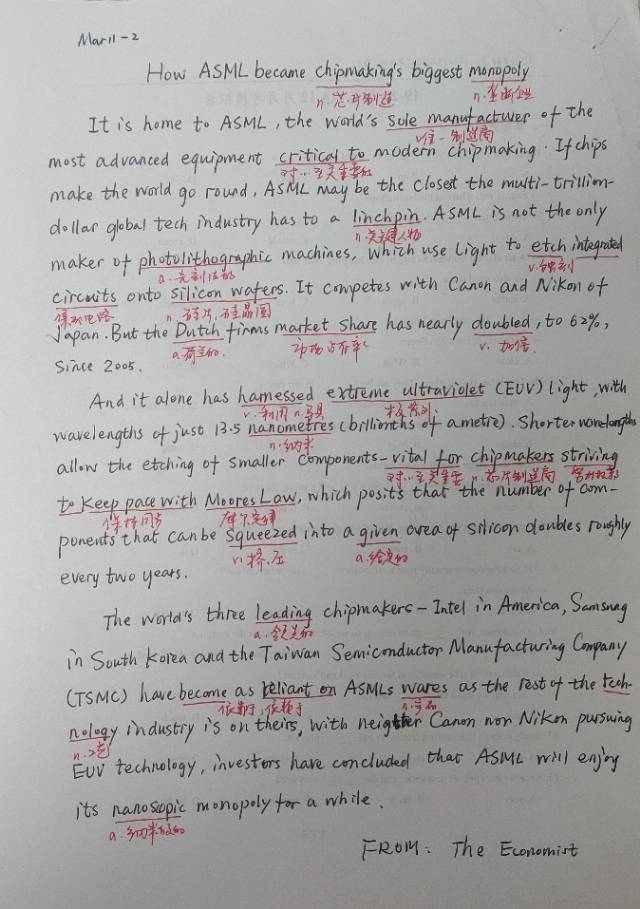 Mar11-2
How ASML became chipmaking's biggest monopoly
n.芯片制造 n.垄断企业
It is home to ASML, the world's sole manufacturer of the
唯一制造商
most advanced equipment critical to modern chipmaking. If chips
对…至关重要的
make the world go round, ASML may be the closest the multi-trillion-
dollar global tech industry has to a linchpin. ASML is not the only
n.关键人物
maker of photolithographic machines, which use light to etch integrated
a.光刻法的 v.蚀刻
circuits onto silicon wafers. It competes with Canon and Nikon of
集成电路 n.硅片,硅晶圆
Japan. But the Dutch firms market share has nearly doubled, to 62%,
a.荷兰的. 市场占有率 v.加倍.
since 2005.
And it alone has harnessed extreme ultraviolet (EUV) light, with
v.利用 n.马具 极紫外
wavelengths of just 13.5 nanometres (billionths of a metre). Shorter wavelengths
n.纳米
allow the etching of smaller components-vital for chipmakers striving
对…至关重要 n.芯片制造商
to keep pace with Moores Law, which posits that the number of com-
保持同步 摩尔定律
ponents that can be squeezed into a given area of silicon doubles roughly
v.挤.压 a.给定的
every two years.
The world's three leading chipmakers-Intel in America, Samsung
a.领先的
in South Korea and the Taiwan Semiconductor Manufacturing Company
(TSMC) have become as reliant on ASMLs wares as the rest of the tech-
依靠于,依赖于
nology industry is on theirs, with neither Canon nor Nikon pursuing
n.工艺
EUV technology, investors have concluded that ASML will enjoy
its nanoscopic monopoly for a while.
a.纳米级的
FROM: The Economist